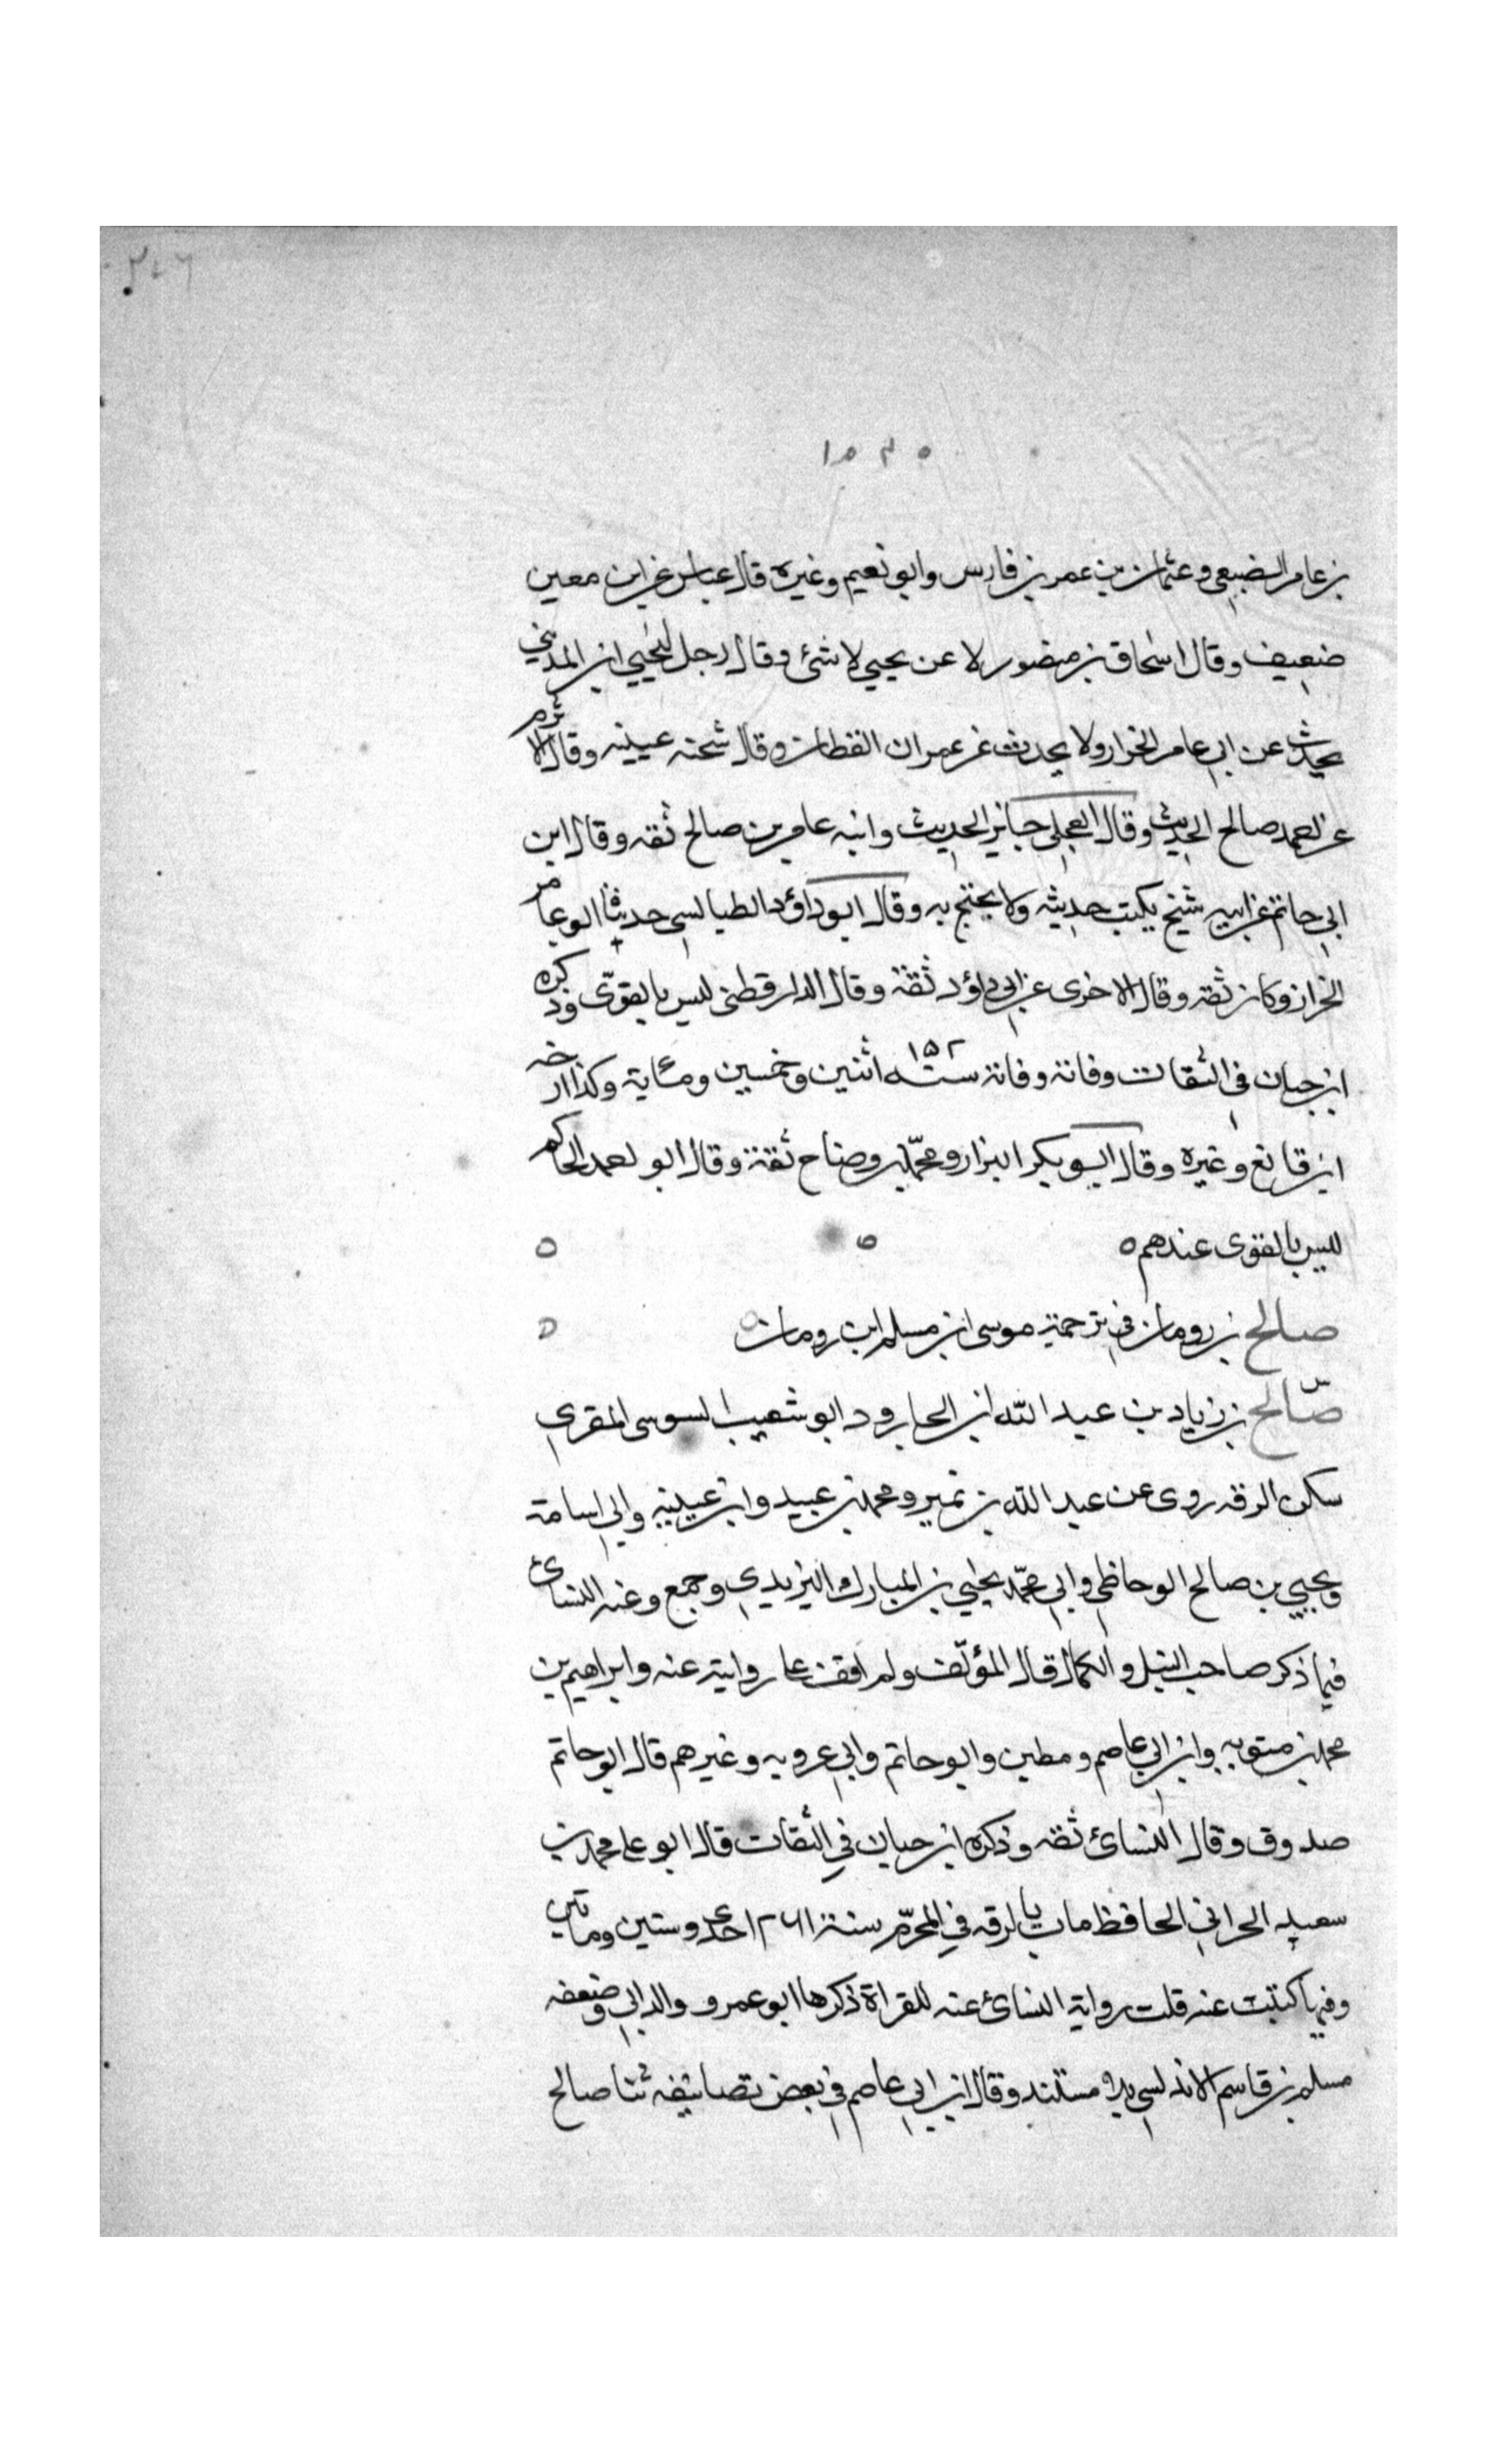 بن عامر الضبعى وعثمان بن عمر بن فارس وابو نعيم وغيره قال عباس عن ابن معين
ضعيف وقال اسحاق بن منصور لا عن يحيي لا شئ وقال رجل ليحيي ابن المديني
يحدث عن ابي عامر الخزار ولا يحدث عن عمران القطان وقال شحنه عيينه وقال الاثرم
عن احمد صالح الحديث وقال العجلى جايز الحديث وابنه عامر بن صالح ثقه وقال ابن
ابي حاتم عن ابيه شيخ يكتب حديثه ولا يحتج به وقال ابو داؤد الطيالسى حدثنا ابو عامر
الخزاز وكان ثقة وقال الاخرى عن ابي داؤد ثقة وقال الدارقطنى ليس بالقوى وذكره
ابن حبان فى الثقات وفاته وفاته سنه ١٥٢ اثنين وخمسين ومئاية وكذا ارخه
ابن قانع وغيره وقال ابو بكر البزار ومحمد بن وضاح ثقة وقال ابو احمد الحاكم
ليس بالقوى عندهم ه
صالح بن رومان في ترجمة موسى ابن مسلم ابن رومان
س صالح بن زياد بن عبد الله ابن الجارود ابو شعيب السوسى المقري
سكن الرقه روى عن عبد الله بن نمير ومحمد بن عبيد وابن عيينه وابي اسامة
ويحيي بن صالح الوحاظي وابي محمد يحيي بن المبارك اليزيدي وجمع وعنه النسائ
فيما ذكر صاحب النبل والكمال قال المؤلف ولم اقف على روايته عنه وابراهيم بن
محمد بن متويه وابن ابي عاصم ومطين وابو حاتم وابي عروبه وغيرهم قال ابو حاتم
صدوق وقال النسائ ثقه وذكره ابن حبان في الثقات قال ابو على محمد بن
سعيد الحراني الحافظ مات بالرقه في المحرم سنة ٢٦١ احدى وستين وماتين
وفيها كتبت عنه قلت رواية النسائ عنه للقراة ذكرها ابو عمرو والداني وضعفه
مسلم بن قاسم الاندلسي بلا مستند وقال ابن ابي عاصم في بعض تصانيفه ثنا صالح